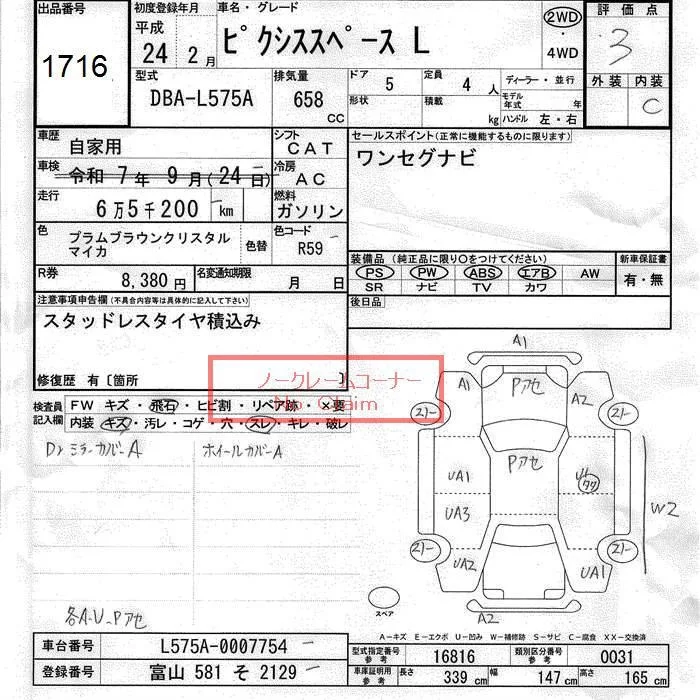 出品番号 初度登録年月 車名・グレード 2WD 評価点
1716 平成 24 2月 ピクシススペース L ・ 4WD 3
型式 排気量 ドア 5 定員 4人 ディーラー・並行 外装 内装
DBA-L575A 658 CC 形状 積載 kg モデル年式 年 ハンドル 左・右 C
車歴 自家用 シフト CAT セールスポイント(正常に機能するものに限ります)
車検 令和 7年 9月(24日) 冷房 AC ワンセグナビ
走行 6万5千200 km 燃料 ガソリン
色 プラムブラウンクリスタルマイカ 色替 色コード R59
装備品 (純正品に限り○をつけてください) 新車保証書
R券 8,380円 名変通知期限 月 日 PS PW ABS エアB AW 有・無
SR ナビ TV カワ
注意事項申告欄(不具合内容等は具体的に記入して下さい) 後日品
スタッドレスタイヤ積込み
修復歴 有〔箇所 〕
ノークレームコーナー
No Claim
検査員記入欄 FW キズ・飛石・ヒビ割・リペア跡・×要
内装・キズ・汚レ・コゲ・穴・スレ・キレ・破レ
Dr ミラーカバーA ホイールカバーA
A1
A1 Pアセ A2
スリー スリー
Pアセ
UA1 U1 タワ
UA3 W2
スリー スリー
UA2 UA1
スペア A2
各A-U-Pアセ
A－キズ E－エクボ U－凹み W－補修跡 S－サビ C－腐食 XX－交換済
車台番号 L575A-0007754 型式指定番号 参考 16816 類別区分番号 参考 0031
登録番号 富山 581 そ 2129 車庫証明用 参考 長さ 339 cm 幅 147 cm 高さ 165 cm